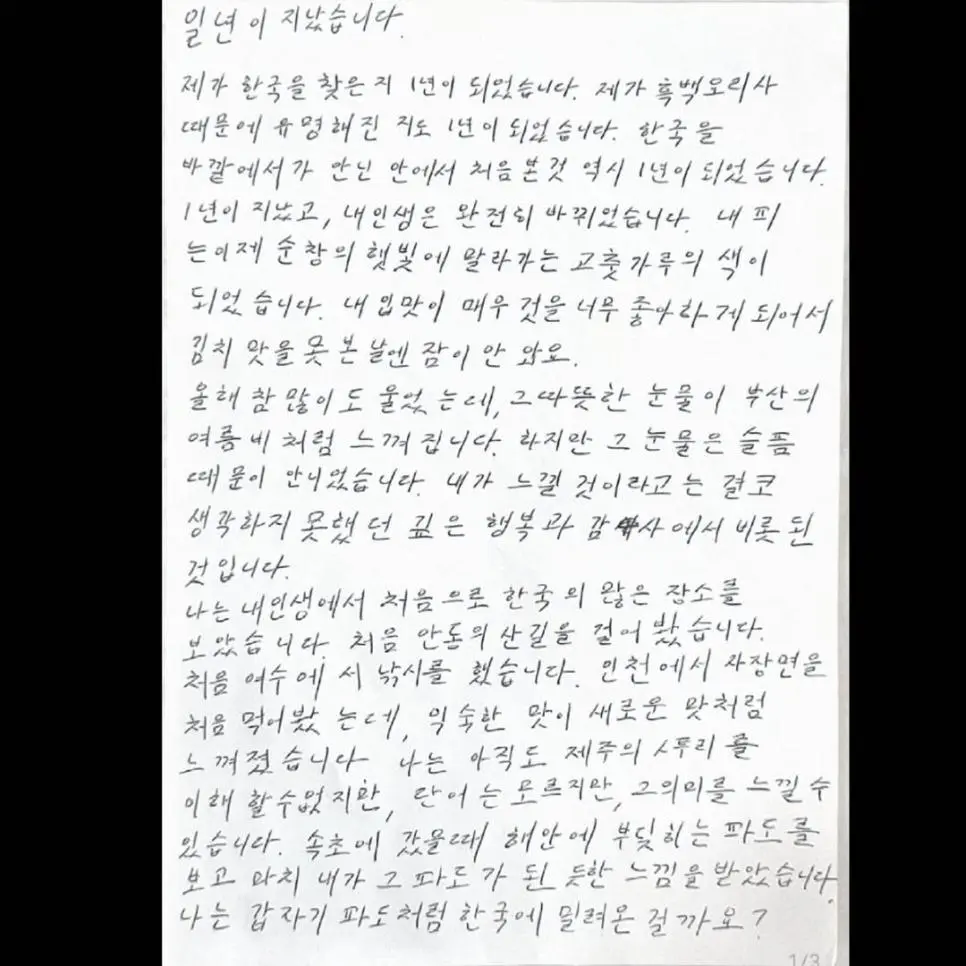 일년이 지났습니다.
제가 한국을 찾은 지 1년이 되었습니다. 제가 흑백요리사
때문에 유명해진 지도 1년이 되었습니다. 한국을
바깥에서가 안닌 안에서 처음 본것 역시 1년이 되었습니다.
1년이 지났고, 내인생은 완전히 바뀌었습니다. 내 피
는이제 순창의 햇빛에 말라가는 고춧가루의 색이
되었습니다. 내 입맛이 매우 것을 너무 좋아하게 되어서
김치 맛을 못 본 날엔 잠이 안 와요.
올해 참 많이도 울었는데, 그따뜻한 눈물이 부산의
여름비처럼 느껴집니다. 하지만 그 눈물은 슬픔
때문이 안니었습니다. 내가 느낄 것이라고는 결코
생각하지 못했던 깊은 행복과 감사에서 비롯된
것입니다.
나는 내인생에서 처음으로 한국의 많은 장소를
보았습니다. 처음 안동의 산길을 걸어 봤습니다.
처음 여수에서 낚시를 했습니다. 인천에서 자장면을
처음 먹어봤는데, 익숙한 맛이 새로운 맛처럼
느껴졌습니다. 나는 아직도 제주의 사투리를
이해 할수없지만, 단어는 모르지만, 그의미를 느낄 수
있습니다. 속초에 갔을때 해안에 부딪히는 파도를
보고 마치 내가 그 파도가 된 듯한 느낌을 받았습니다.
나는 갑자기 파도처럼 한국에 밀려온 걸까요?
1/3